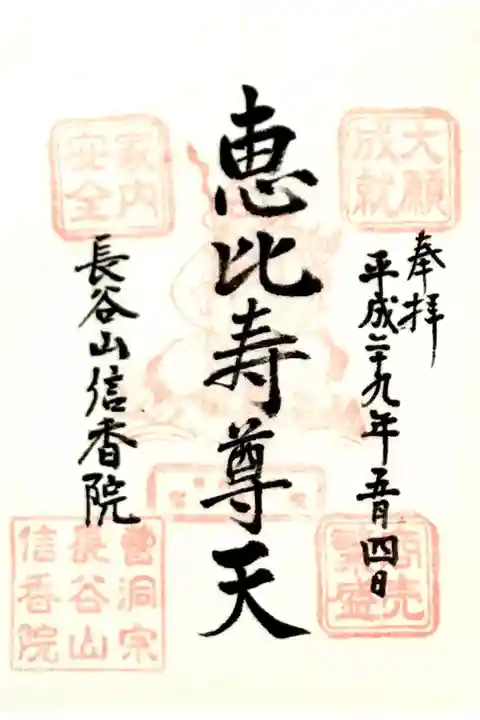 奉拝
平成二十九年五月四日
恵比寿尊天
長谷山信香院
大願成就
家内安全
商売繁盛
曹洞宗長谷山信香院